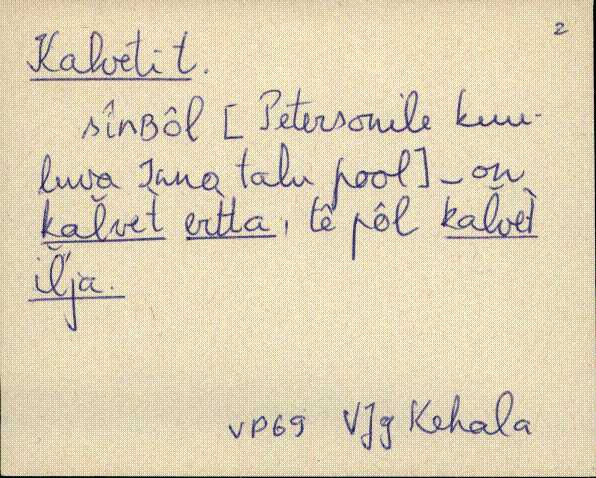 2
Kalveti t.
sînʙôl [Petersonile kuu-
luva Jana talu pool] – on
kalvèt ertta, tê pôl kalvèt
iľja.
VP69 VJg Kehala